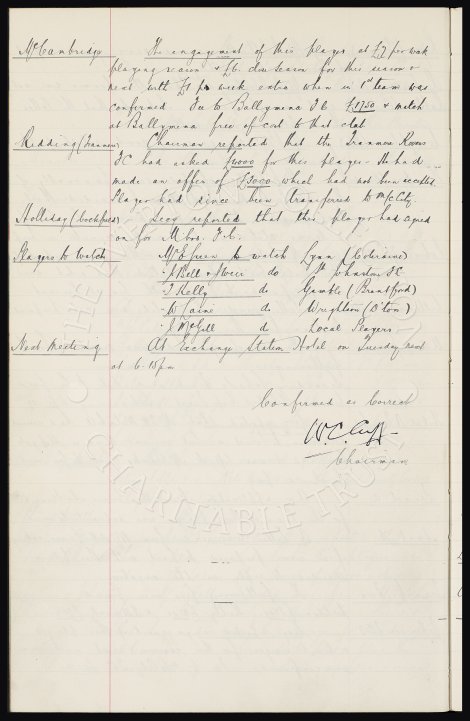 McCambridge The engagement of this player at £7 per week
playing season & £6 close season for this season &
next with £1 per week extra when in 1st team was
confirmed. Fee to Ballymena F.C. £1750 & match
at Ballymena free of cost to that club
Redding (Tranmere) Chairman reported that the Tranmere Rovers
F.C had asked £4000 for this player. He had
made an offer of £3000 which had not been accepted.
Player had since been transferred to M/c City.
Holliday (Cockfield) Secy reported that this player had signed
on for Mbro. F.C.
Players to Watch Mr E Green to watch Lynn (Coleraine)
" J Bell & Weir do St Johnston F.C
" J Kelly do Gamble (Brentford)
" W Caine do Wrightson (D'ton)
" J McGill do Local Players
Next Meeting At Exchange Station Hotel on Tuesday next
at 6-15 pm
Confirmed as Correct
W.C. Cuff
Chairman
CHARITABLE TRUST